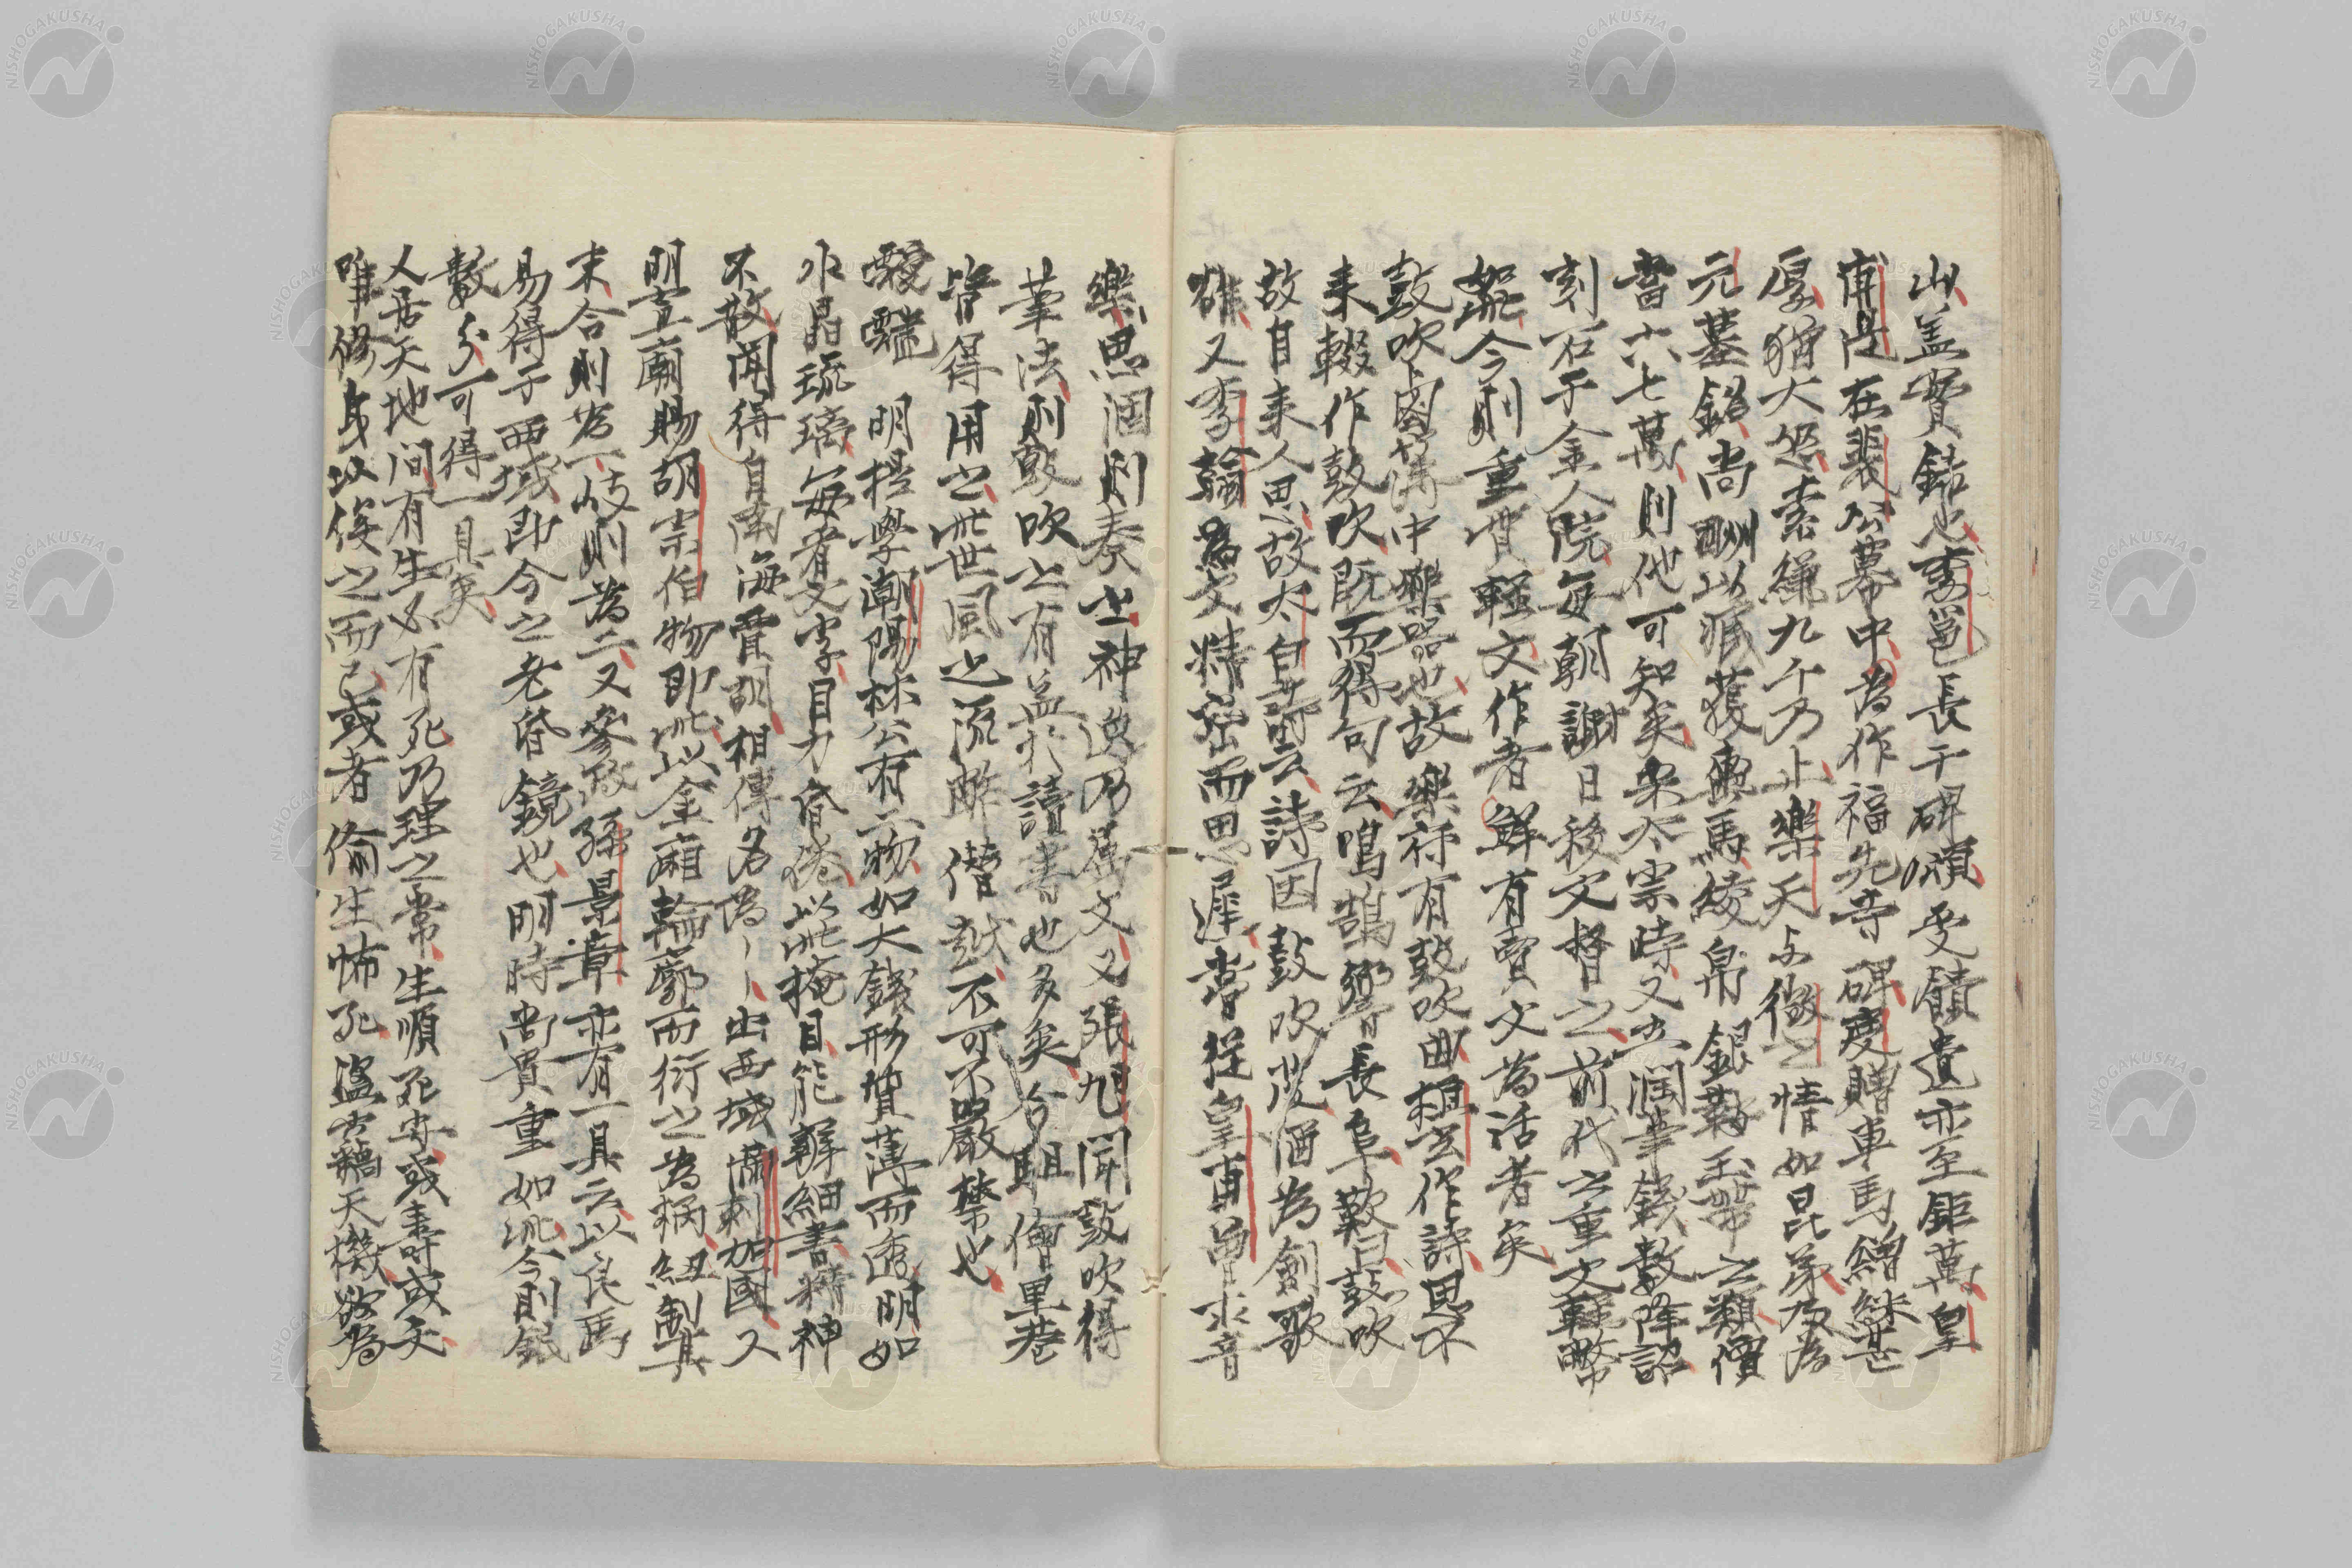 山、盖實録也、李邕長于碑頌、受饋遺亦至鉅萬、皇
甫湜在裴公幕中、為作福先寺碑、度贈車馬繒綵甚
厚、猶大怒、索縑九千乃止、樂天与微之情如昆弟、及為
元墓銘、尚酬以臧獲輿馬綾帛銀鞍玉帶之類、價
當六七萬、則他可知矣、宋太宗時又立潤筆錢數、降詔
刻石于金人院、每朝謝日移文督之、前代之重文輕幣
如此、今則重貲輕文、作者鮮有賣文為活者矣、
鼓吹、鹵簿中樂器也、故樂府有鼓吹曲、桓玄作詩、思不
来輟作鼓吹、既而得句云、鳴鵠響長阜、歎曰、鼓吹
故自来人思、故太白詩云、詩因鼓吹發、酒為劍歌
雄、又李翰為文精密而思遲、嘗從皇甫曾求音
樂、思涸則奏之、神逸乃屬文、又張旭聞鼓吹得
筆法、則鼓吹之有益於讀書也多矣、今駔儈里巷
皆得用之、此世風之流、酢僭越、不可不嚴禁也、
靉靆　明提學潮陽林公有二物、如大錢形、質薄而透明、如
水晶琉璃、每看文字、目力昏倦、以此掩目、能辨細書、精神
不散、聞得自南海賈胡、相傳名為〻〻、出西域滿剌加國、又
明宣廟賜胡宗伯物、即此、以金廂輪廓而衍之為柄、紐制其
末、合則為一、歧則為二、又參政孫景章亦有一具、云以良馬
易得于西域、即今之老昏鏡也、明時尚貴重如此、今則銀
數分可得一具矣、
人居天地间、有生必有死、乃理之常、生順死安、或壽或夭、
唯修身以俟之而已、或者偷生怖死、盜竊天機、欲為